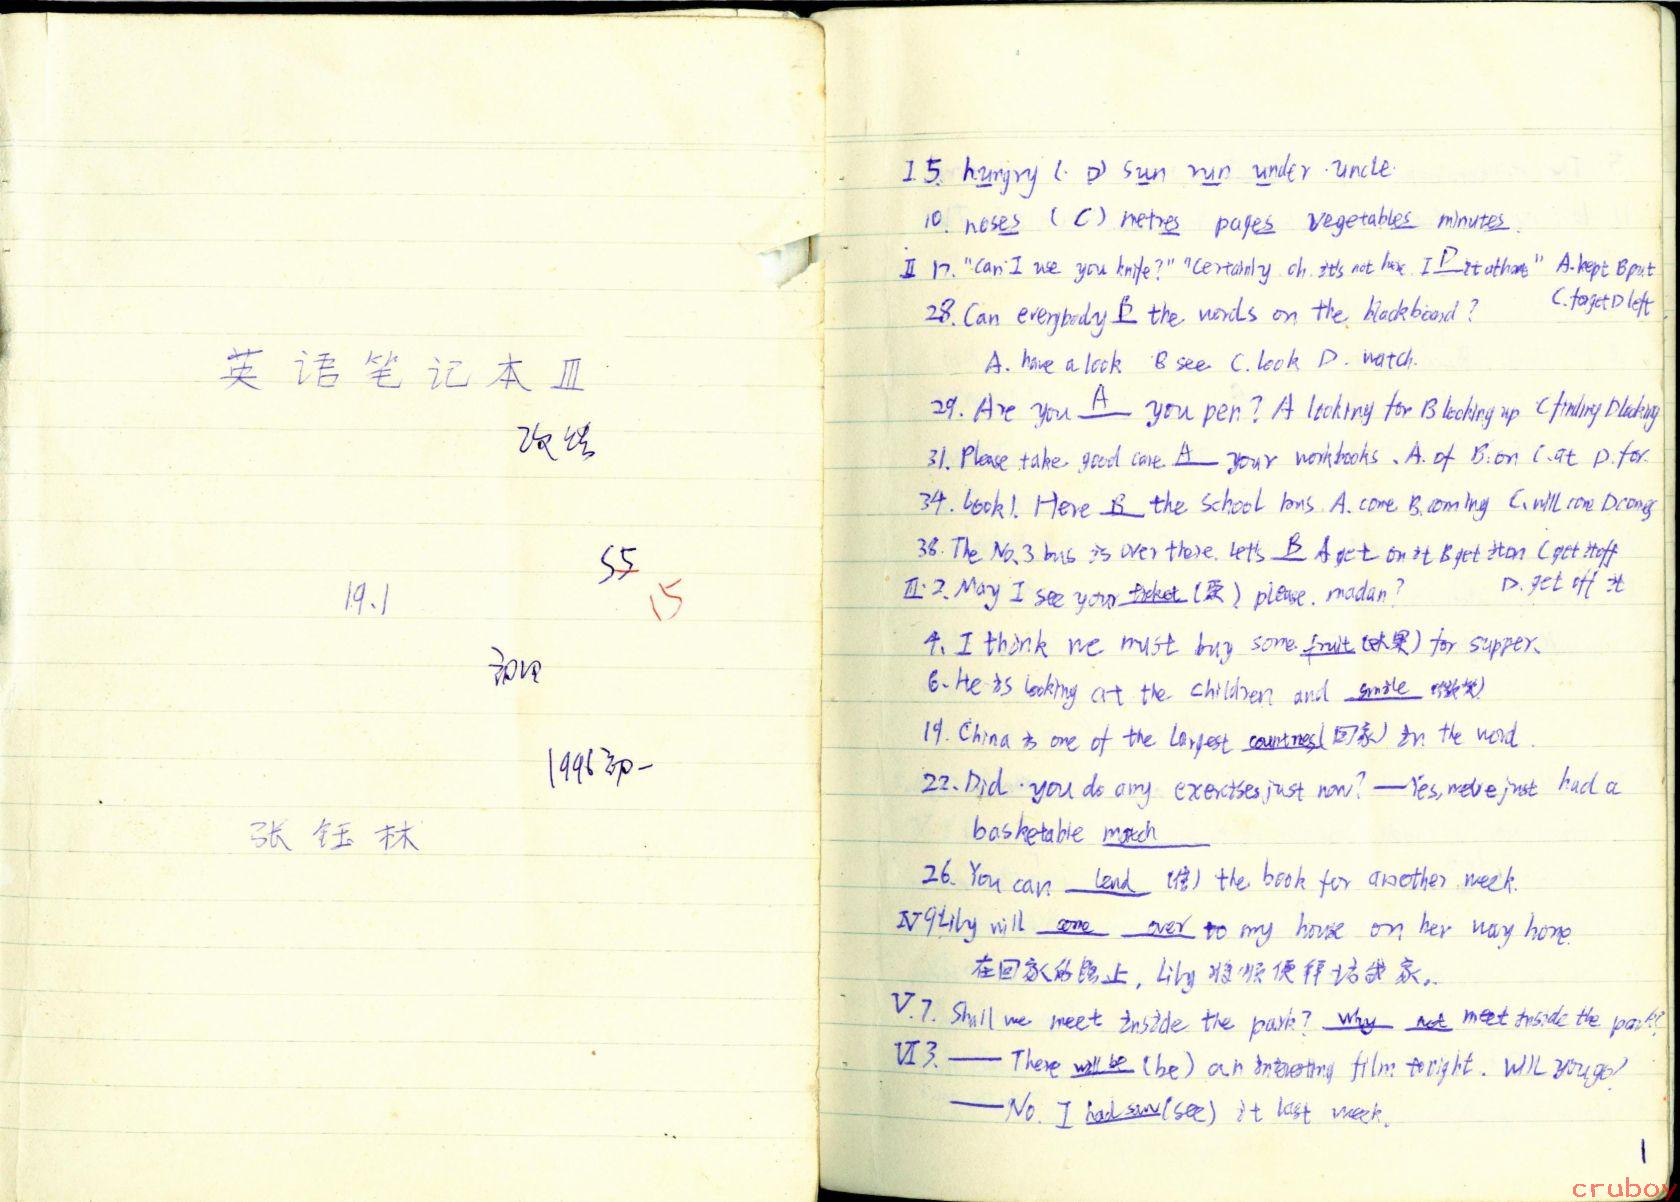 英语笔记本 III
改错
55
15
19.1
初四
1996初一
张钰林
I 5. hungry (. D) sun run under uncle.
10. noses (C) metres pages vegetables minutes.
II 17. "Can I use you knife?" "Certainly oh. it's not here I D it at home" A. kept B put
C. forget D left
28. Can everybody B the words on the blackboard?
A. have a look B see C. look D. watch.
29. Are you A you pen? A looking for B looking up C finding D looking
31. Please take good care A your workbooks. A. of B. on C. at D. for.
34. Look! Here B the school bus A. come B. coming C. will come D comes
38. The No. 3 bus is over there. Let's B A get on it B get it on C get it off
D. get off it
III. 2. May I see your ticket (票) please. madan?
4. I think we must buy some fruit (水果) for supper.
6. He is looking at the children and smile (微笑)
19. China is one of the largest countries (国家) in the word.
22. Did you do any exercises just now? — Yes, we've just had a
basketable match
26. You can lend (借) the book for another week.
IV 9 Lily will come over to my house on her way home.
在回家的路上, Lily 将顺便拜访我家.
V. 7. Shall we meet inside the park? why not meet inside the park?
VI 3. — There will be (be) an interesting film tonight. Will you go?
— No. I had saw (see) it last week.
1
crubov